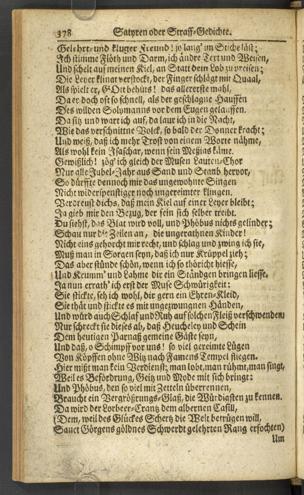 378 Satyren oder Straff-Gedichte.
Gelehrt- und kluger Freund! so lang' im Stiche läst;
Ich stimme Flöth und Darm, ich änder Tert und Weisen,
Und schelt auf meinen Kiel, an Statt dein Lob zu preisen;
Die Leyer klinat verstockt, der Finger schlägt mit Quaal,
Als spielt er, GOtt behüts! das allererste mahl,
Da er doch oft so schnell, als der geschlagne Hauffen
Des wilden Solymanns vor dem Eugen gelauffen.
Da sitz und wart ich auf, da laur ich in die Nacht,
Wie das verschnittne Volck, so bald der Donner kracht;
Und weiß, daß ich mehr Trost von einem Worte nähme,
Als wohl kein Isaschar, wenn sein Meßias käme.
Gewißlich! zög' ich gleich der Musen Lauten-Chor
Nur alle Jubel-Jahr aus Sand und Staub hervor,
So dürffte dennoch mir das ungewohnte Singen
Nicht widerspenstiger noch ungereimter klingen.
Verdreust dichs, daß mein Kiel auf einer Leyer bleibt;
Ja gieb mir den Bezug, der sein sich selber treibt.
Du siehst, das Blat wird voll, und Phöbus nichts gelinder;
Schau nur die Zeilen an, die ungerathnen Kinder!
Nicht eins gehorcht mir recht, und schlag und zwing ich sie,
Muß man in Sorgen seyn, daß ich nur Krüppel zieh;
Das aber stünde schön, wenn ich so thöricht hiesse,
Und Krumm' und Lahme dir ein Ständgen bringen liesse.
Ja nun errath' ich erst der Muse Schwürigkeit:
Sie stickte, seh ich wohl, dir gern ein Ehren-Kleid,
Sie thät und stickte es mit ungezwungnen Händen,
Und würd auch Schlaf und Ruh auf solchen Fleiß verschwenden;
Nur schreckt sie dieses ab, daß Heucheley und Schein
Dem heutigen Parnaß gemeine Gäste seyn,
Und daß, o Schimpff vor uns! so viel gereimte Lügen
Von Köpffen ohne Witz nach Famens Tempel stiegen.
Hier mißt man kein Verdienst; man lobt, man rühmt, man singt,
Weil es Beförderung, Geitz und Mode mit sich bringt:
Und Phöbus, den so viel mit Zetteln überrennen,
Braucht ein Vergröstrungs-Glaß, die Würdigsten zu kennen.
Da wird der Lorbeer-Crantz dem albernen Casill,
(Dem, weil des Glückes Schertz die Welt betrügen will,
Sanct Görgens göldnes Schwerdt gelehrten Rang erfochten)
Um